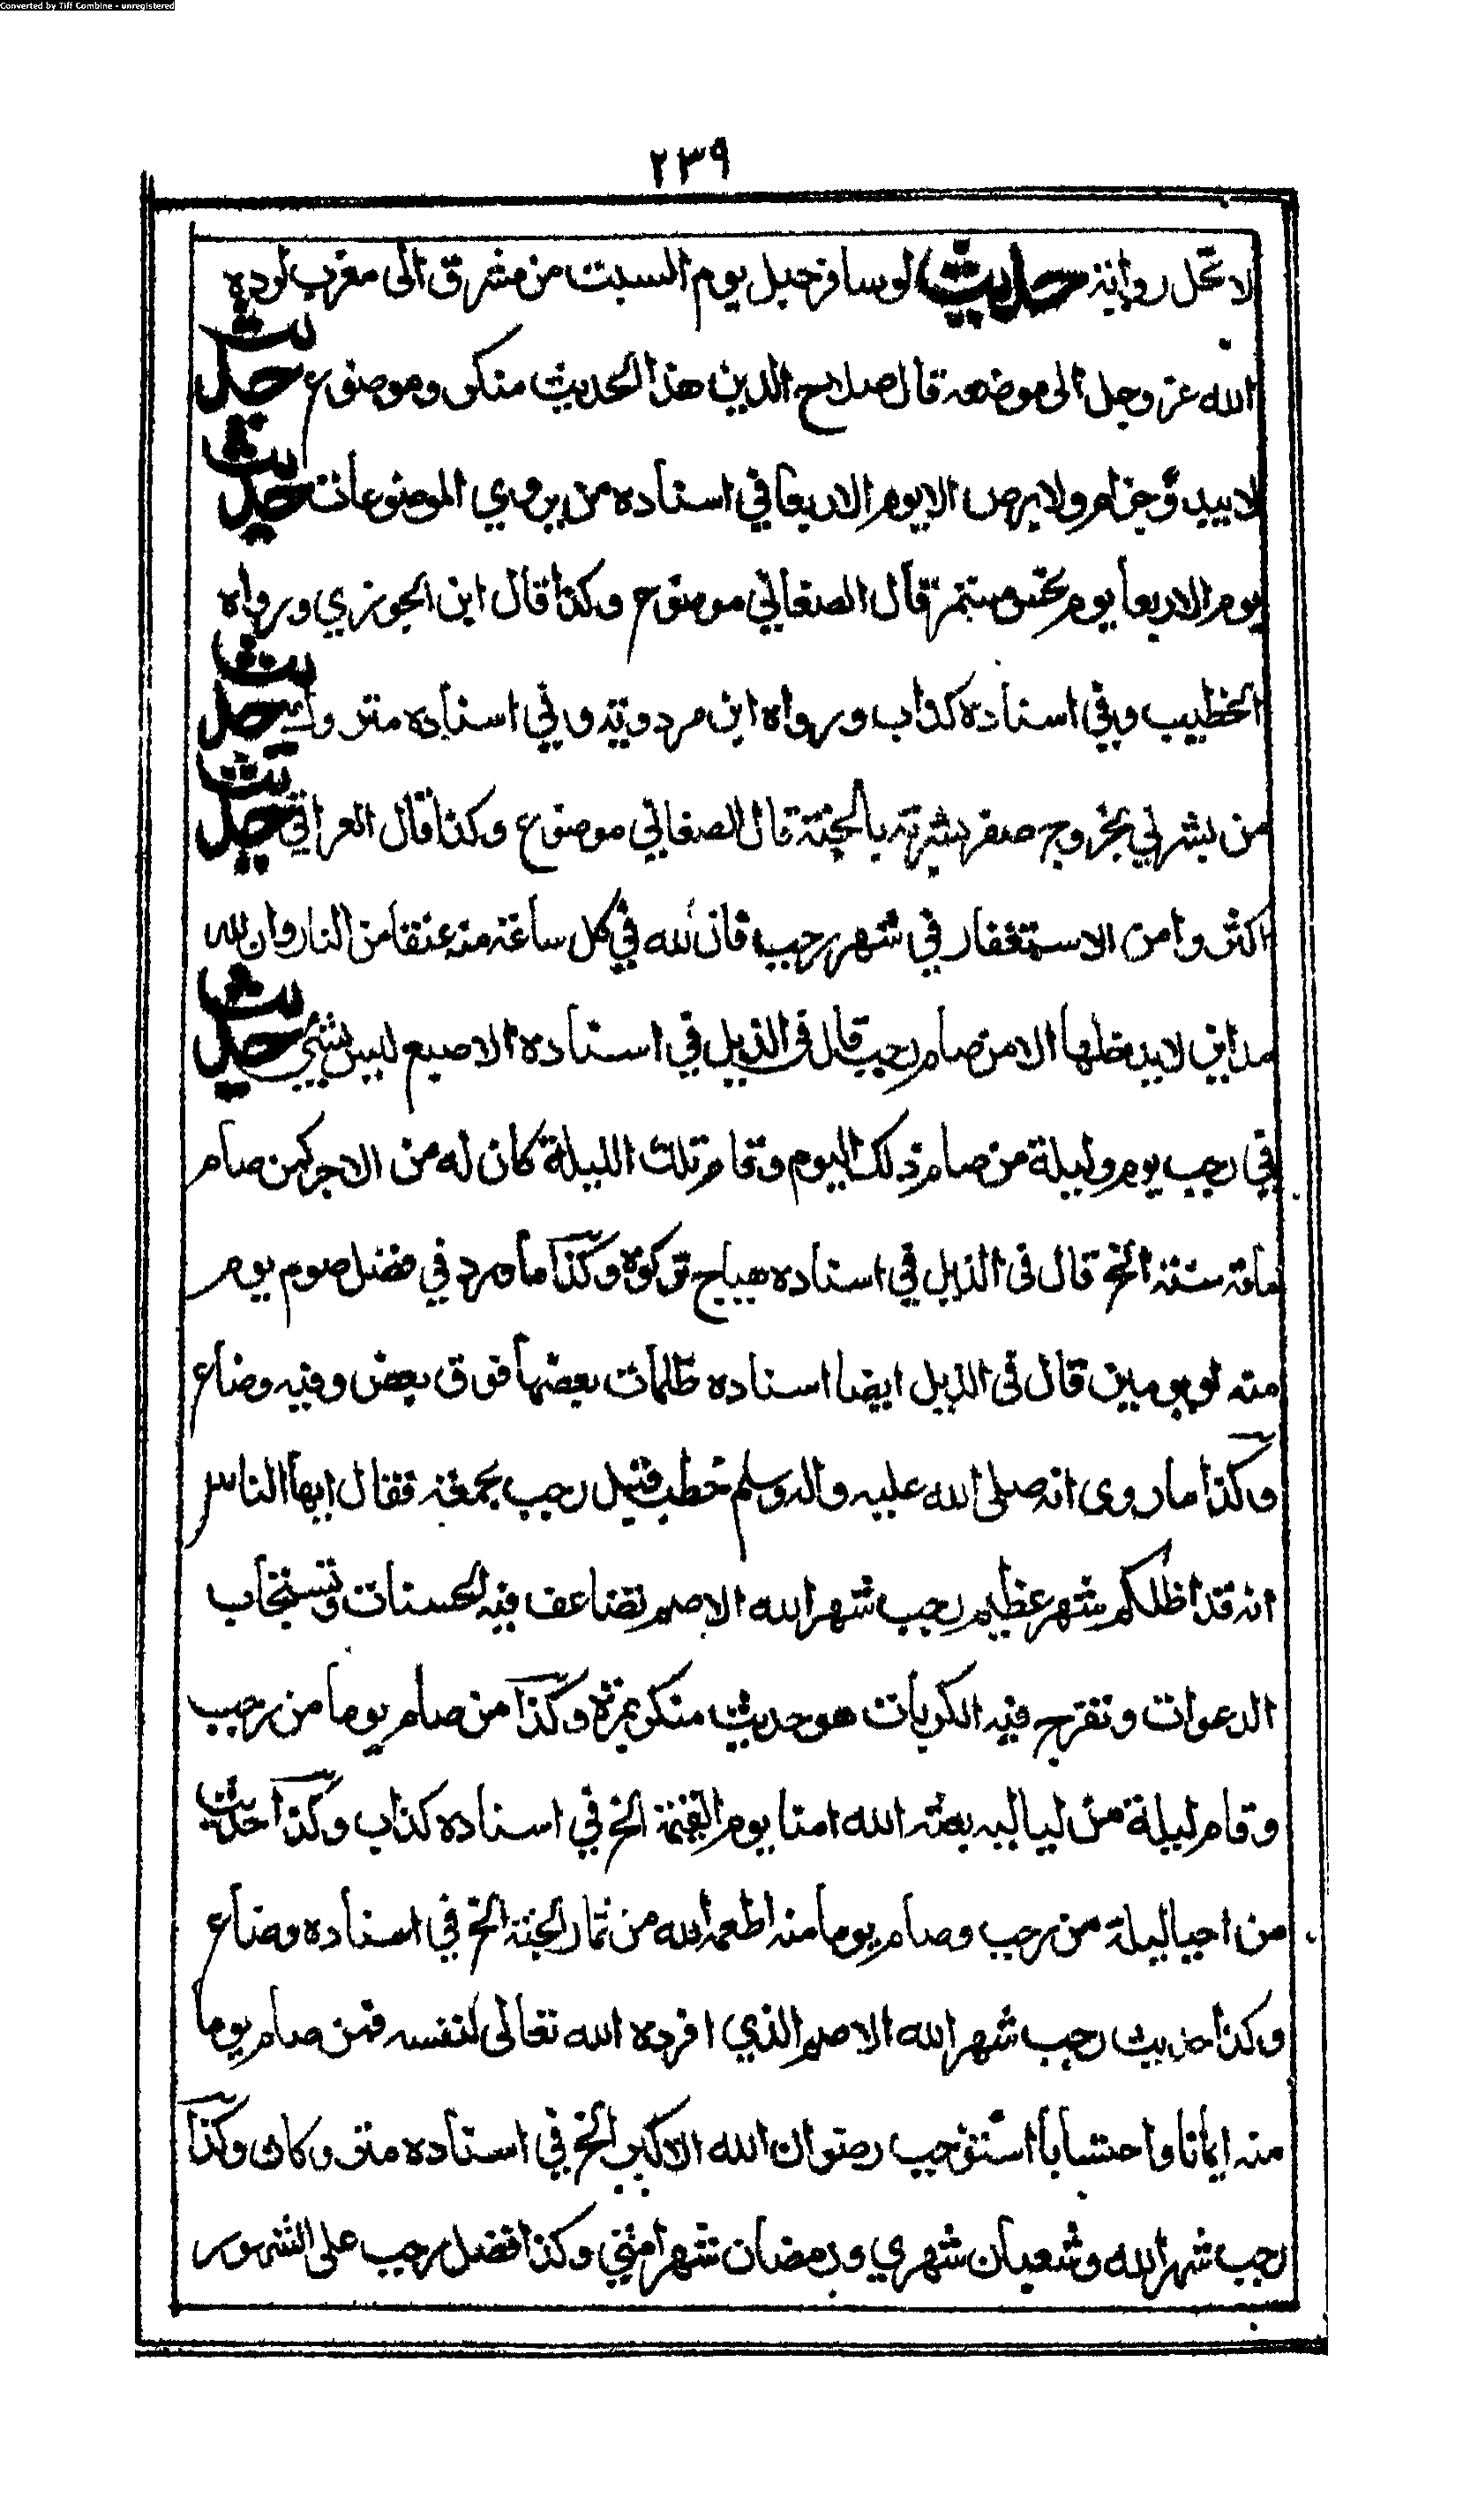 Converted by Tiff Combine - unregistered
٢٣٩
لا تحل روايته حديث لو سافر جبل يوم السبت من مشرق الى مغرب لوده
الله عز وجل الى موضعه قال صلاح الدين هذا الحديث منكر وموضوع حديث
لا يبدؤ جذام ولا برص الا يوم الاربعا في اسناده من يروي الموضوعات حديث
يوم الاربعا يوم نحس مستمر قال الصغاني موضوع وكذا قال ابن الجوزي ورواه
الخطيب وفي اسناده كذاب ورواه ابن مردويه وفي اسناده متروك حديث
من بشرني بخروج صفر بشرته بالجنة قال الصغاني موضوع وكذا قال العراقي حديث
اكثروا من الاستغفار في شهر رجب فان لله في كل ساعة منه عتقا من النار وان لله
مداين لا يدخلها الا من صام رجب قال فى الذيل في اسناده الاصبع ليس بشيء حديث
في رجب يوم وليلة من صام ذلك اليوم وقام تلك الليلة كان له من الاجر كمن صام
مائة سنة الخ قال فى الذيل في اسناده هياج تركوه وكذا ما ورد في فضل صوم يوم
منه لو يومين قال فى الذيل ايضا اسناده ظلمات بعضها فوق بعض وفيه وضاع
وكذا ما روى انه صلى الله عليه واله وسلم خطب قبل رجب بجمعة فقال ايها الناس
انه قد اظلكم شهر عظيم رجب شهر الله الاصم تضاعف فيه الحسنات وتستجاب
الدعوات وتفرج فيه الكربات هو حديث منكر بمرة وكذا من صام يوما من رجب
وقام ليلة من لياليه بعثه الله امنا يوم القيمة الخ في اسناده كذاب وكذا حديث
من احيا ليلة من رجب وصام يوما منه اطعمه الله من ثمار الجنة الخ في اسناده وضاع
وكذا حديث رجب شهر الله الاصم الذي افرده الله تعالى لنفسه فمن صام يوما
منه ايمانا واحتسابا استوجب رضوان الله الاكبر الخ في اسناده متروكان وكذا
رجب شهر الله وشعبان شهري ورمضان شهر امتي وكذا فضل رجب على الشهور